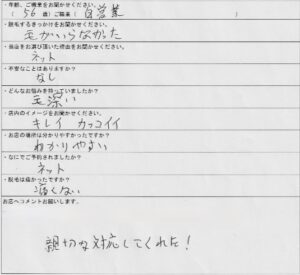 ・年齢、ご職業をお聞かせください。
( 56 歳)ご職業( 自営業 )
・脱毛するきっかけをお聞かせください。
毛がいらなかった
・当店をお選び頂いた理由をお聞かせください。
ネット
・不安なことはありますか?
なし
・どんなお悩みを持っていましたか?
毛深い
・店内のイメージをお聞かせください。
キレイ カッコイイ
・お店の場所は分かりやすかったですか?
わかりやすい
・なにでご予約されましたか?
ネット
・脱毛は痛かったですか?
痛くない
お店へコメントお願いします。
親切な対応してくれた!